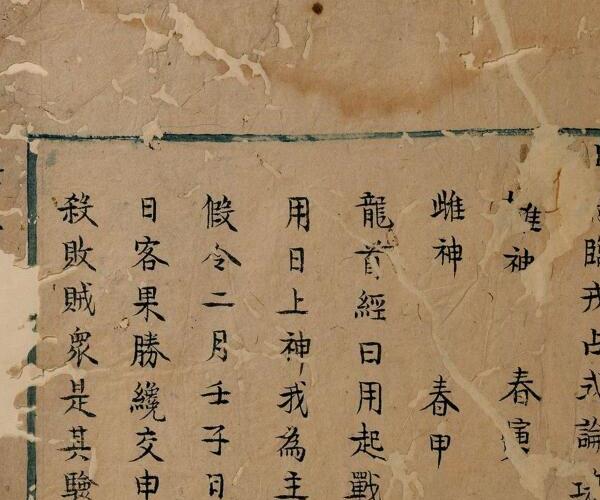 臨戎占式論
神 春寅
雌神 春甲
龍首經曰用起戰
用日上神我為主
假令二月壬子日
日客果勝纔交申
殺敗賊眾是其驗